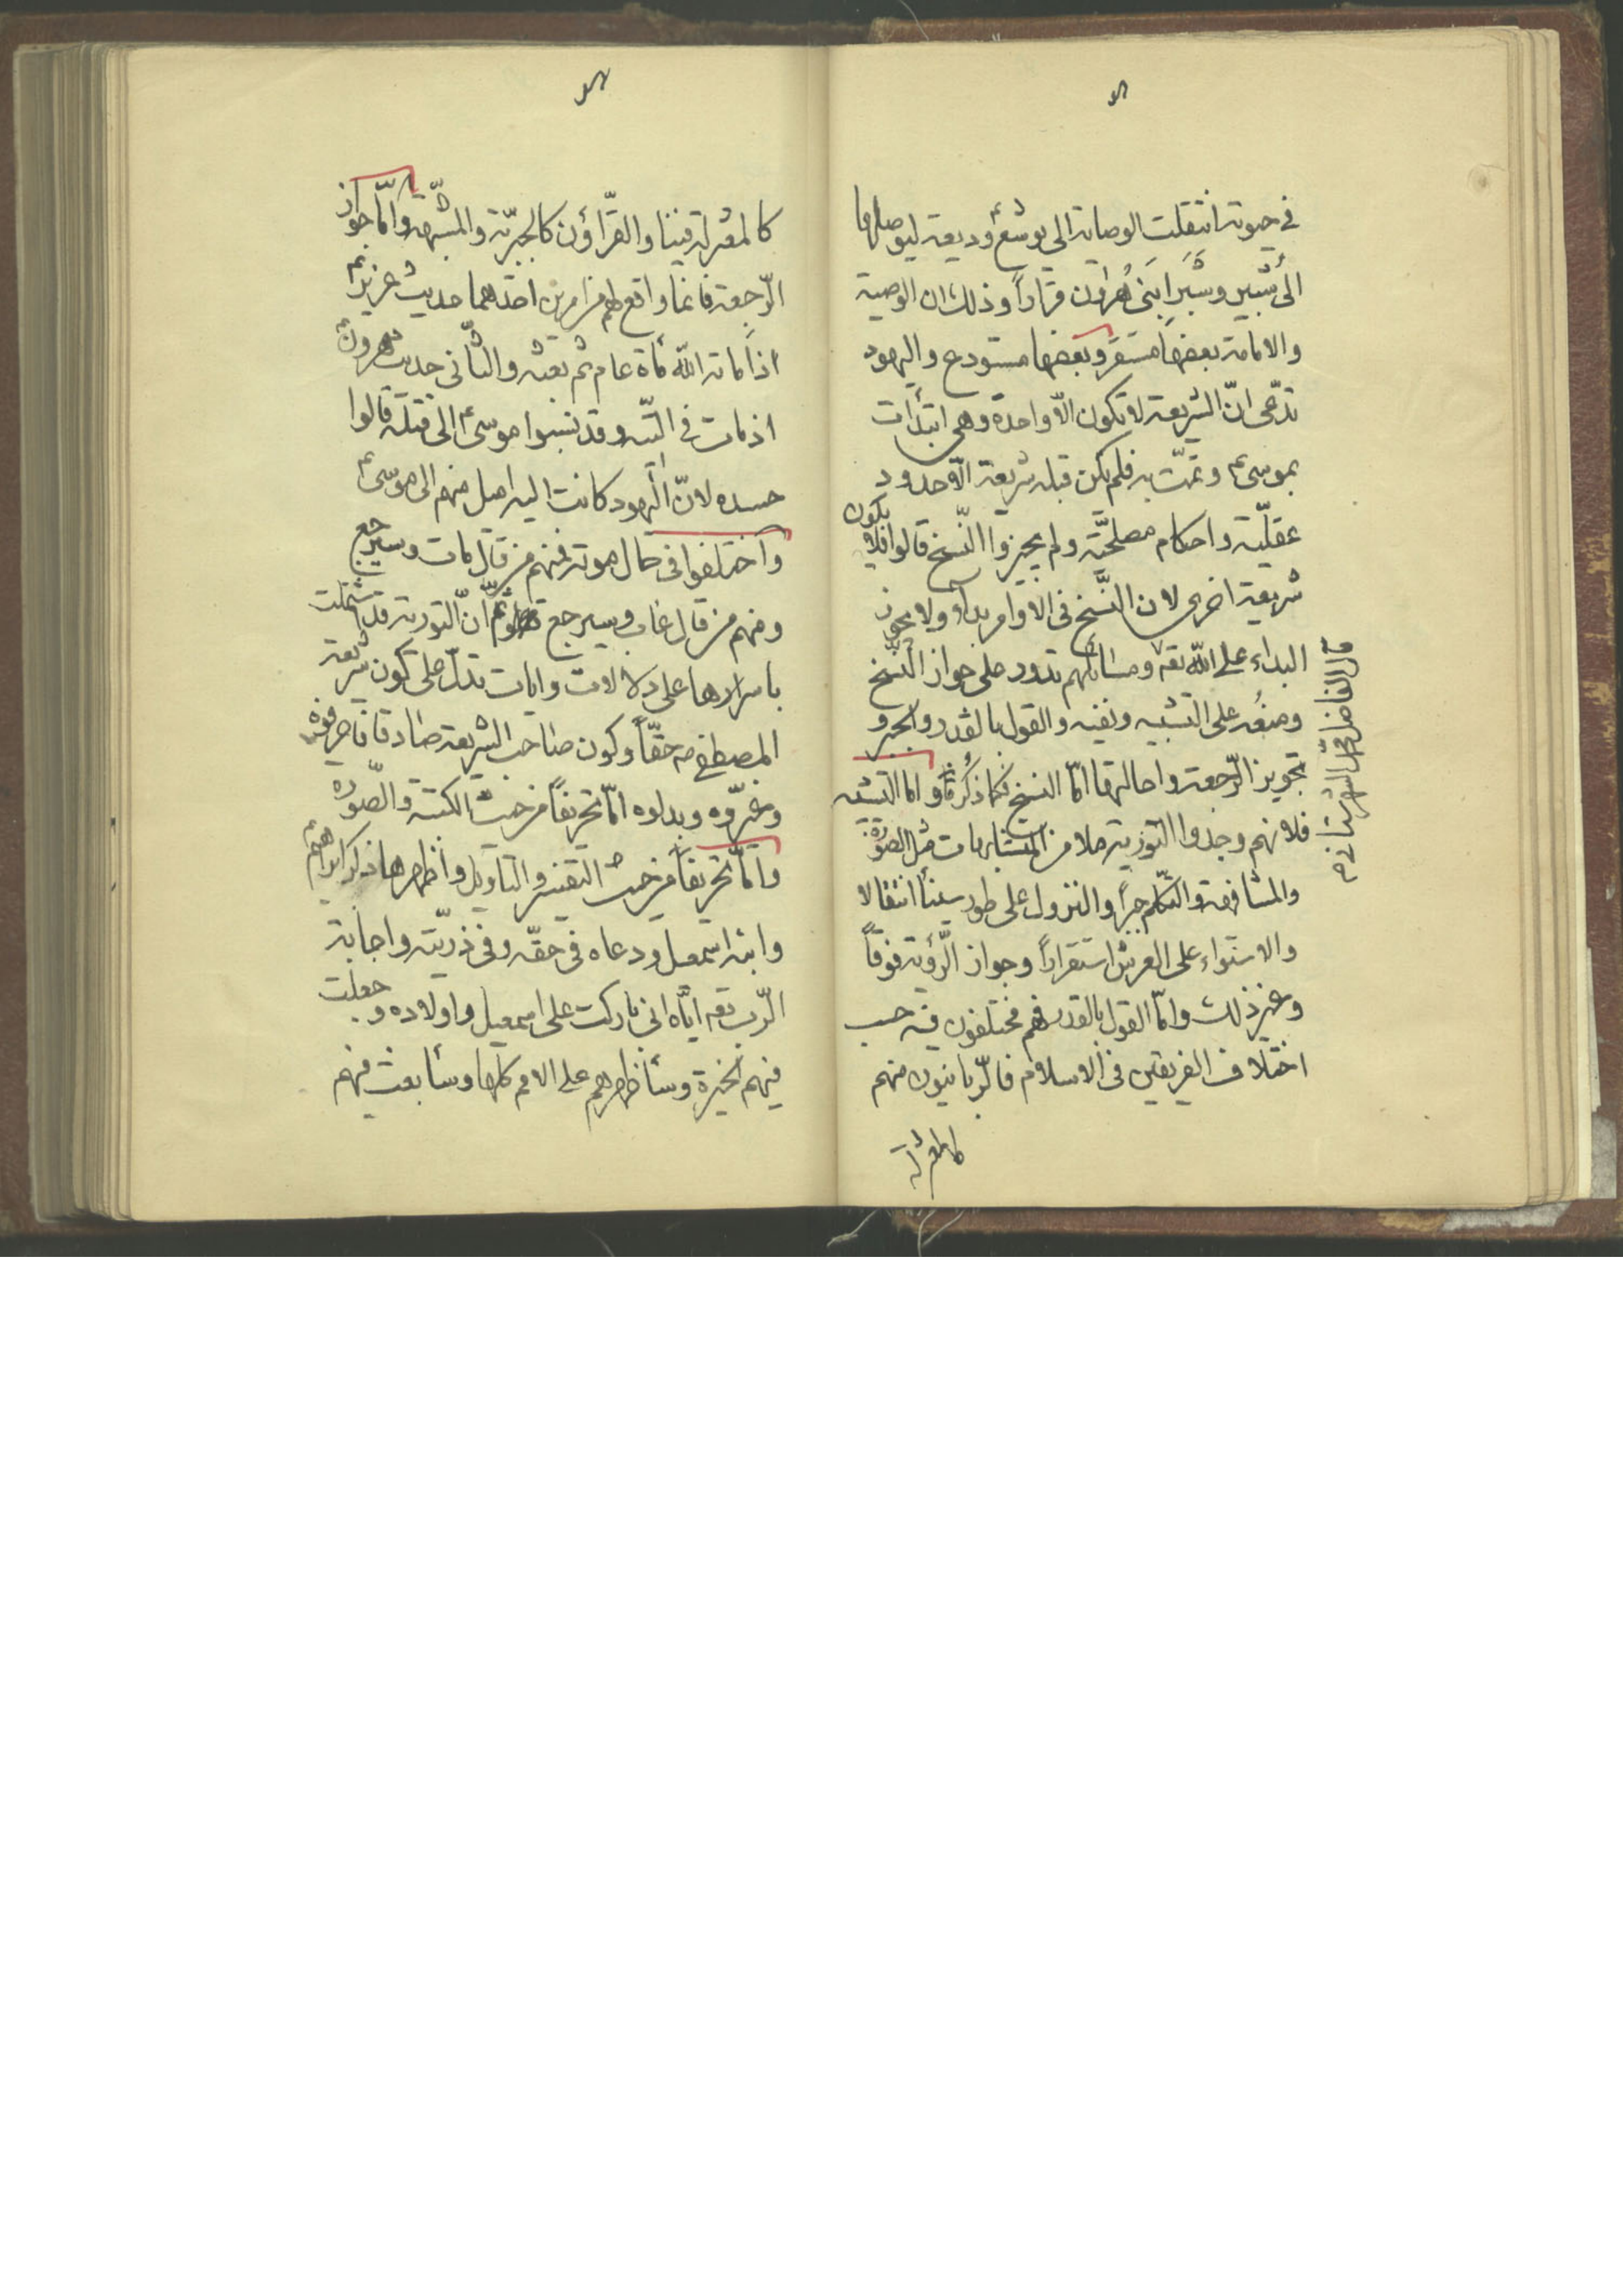 في حيوته انتقلت الوصاية الى يوشع ع وديعة ليوصلها
الى شبير وشبر ابنى هرون قراراً وذلك ان الوصية
والامامة بعضها مستقر وبعضها مستودع واليهود
تدّعى انّ الشريعة لا تكون الّا واحدة وهى ابتدأت
بموسى ع وتمّت به فلم يكن قبله شريعة الّا حدود
عقليّة واحكام مصلحيّة ولم يجيزوا النّسخ قالوا فلا يكون
شريعة اخرى لان النَّسخ فى الاوامر بداء ولا يجوز
البداء على اللّه تعه ومسائلهم تدور على جواز النّسخ
ومنعُه على التشبيه ونفيه والقول بالقدر والجبر و
تجويز الرّجعة واحالتها امّا النسخ فكما ذكرنا واما التشبيه
فلانهم وجدوا التورية ملا من المتشابهات مثل الصّورة
والمشافهة والتكلّم جهراً والنزول على طور سينأ انتقالا
والاستواء على العرش استقراراً وجواز الرّؤية فوقاً
وغير ذلك وامّا القول بالقدر فهم مختلفون فيه حسب
اختلاف الفريقين فى الاسلام فالرّبانيون منهم
كالمعتزلة
قال الفاضل محمّد الشهرستانى
كالمعتزلة فينا والقرّاؤن كالجبريّة والمشبّهة وامّا جواز
الرّجعة فانما واقع لهم من امرين احدهما حديث عزير ع
اذ اماته اللّه مأة عام ثم بعثه والثّانى حديث هرون ع
اذ مات فى التّيه وقد نسبوا موسى ع الى قتله قالوا
حسده لانّ اليهود كانت اليه اميل منهم الى موسى ع
واختلفوا فى حال موته فمنهم من قال مات وسيرجع
ومنهم من قال غاب وسيرجع انّ التورية قد اشتملت
باسرارها على دلالات وايات تدلّ على كون شريعة
المصطفى ص حقّاً وكون صاحب الشريعة صادقا ما حرفوه
وغيّروه وبدلوه امّا تحريفاً من حيث الكتبة والصّورة
وامّا تحريفاً من حيث التفسير والتاويل واظهرها ذكر ابراهيم ع
وابنه اسمعيل ودعاه فى حقّه وفى ذريّته واجابة
الرّب تعه ايّاه انى باركت على اسمعيل واولاده وجعلت
فيهم الخيرة وسأظهرهم على الامم كلها وسأبعث فيهم